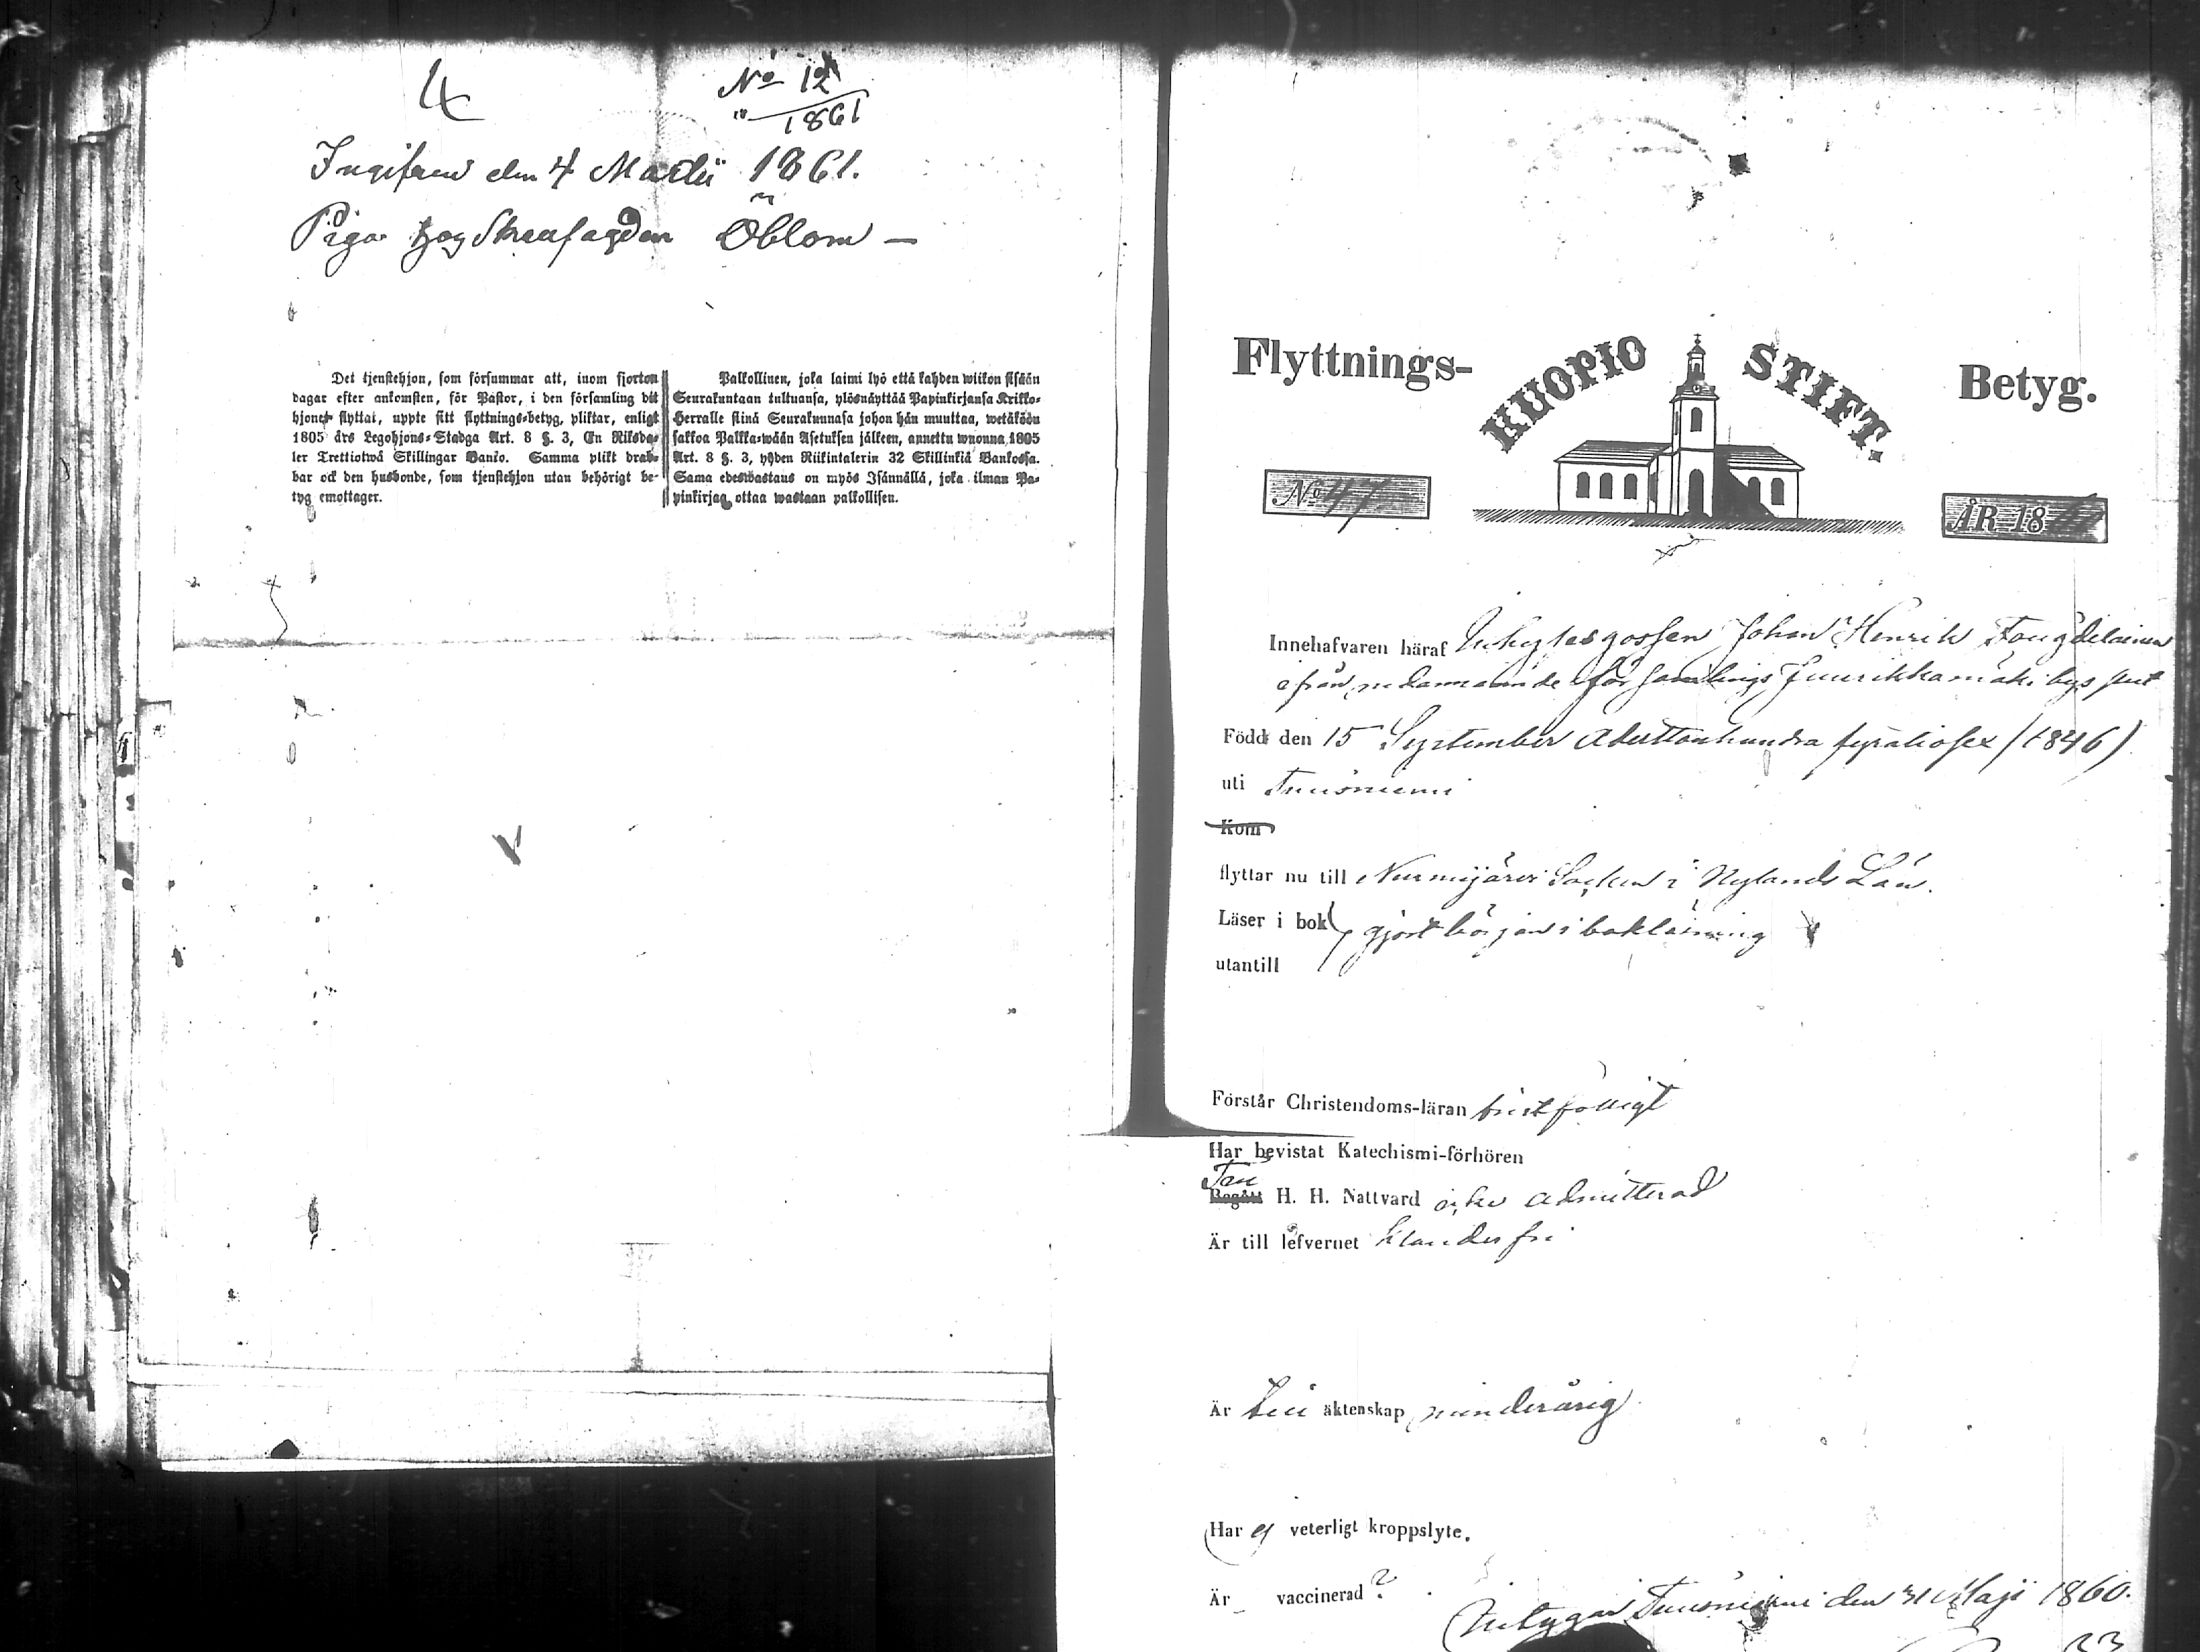 4
No 12
1861
den 4 Martii 1861.
Piga hos Öblom —
Det tjenstehjon, som försummar att, inom fjorton
dagar efter ankomsten, för Pastor, i den församling dit
hjonet flyttat, uppte sitt flyttnings-betyg, pliktar, enligt
1805 års Legohjons-Stadga Art. 8 §. 3, En Riksda-
ler Trettiotwå Skillingar Banko. Samma plikt drab-
bar ock den husbonde, som tjenstehjon utan behörigt be-
tyg emottager.
Palkollinen, joka laimi lyö että kahden wiikon sisään
Seurakuntaan tultuansa, ylösnäyttää Papinkirjansa Kirkko-
Herralle siinä Seurakunnasa johon hän muuttaa, wetäköön
sakkoa Palkka-wään Asetuksen jälkeen, annettu wuonna 1805
Art. 8 §. 3, yhden Riikintalerin 32 Skillinkiä Bankossa.
Sama edeswastaus on myös Isännällä, joka ilman Pa-
pinkirjaa ottaa wastaan palkollisen.
Flyttnings- KUOPIO STIFT. Betyg.
No 47 ÅR 18
Innehafvaren häraf Inhyses gossen Johan Henrik
ifrån nedannämnde församlings Juurikkamäki by
Född den 15 September Adertonhundra fyratiosex (1846)
uti Tuusniemi
Kom
flyttar nu till Nurmijärvi Socken i Nylands Län.
Läser i bok gjort början i bokläsning
utantill
Förstår Christendoms-läran bristfälligt
Har bevistat Katechismi-förhören
Till
Begått H. H. Nattvard icke admitterad
Är till lefvernet klanderfri
Är till äktenskap minderårig
Har ej veterligt kroppslyte.
Är vaccinerad?
Intygar Tuusniemi den 31 Maji 1860.